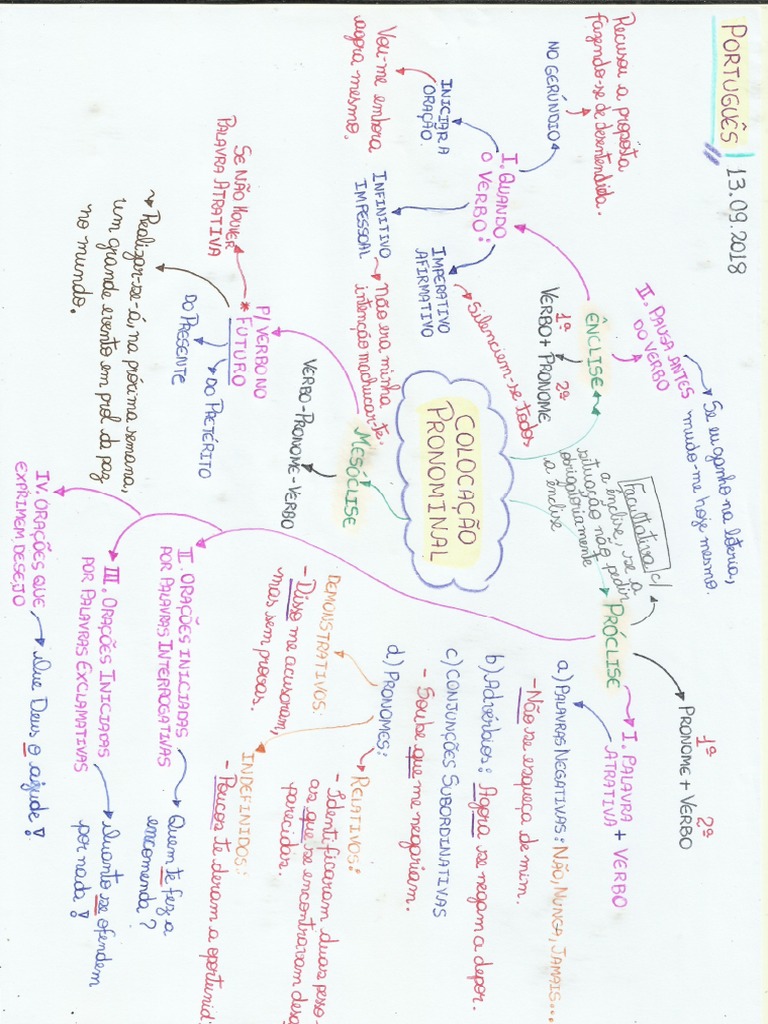 PORTUGUÊS 13.09.2018
COLOCAÇÃO
PRONOMINAL
ÊNCLISE
1º 2º
VERBO + PRONOME
I. QUANDO
O VERBO:
NO GERÚNDIO
Recusou a proposta
fazendo-se de desentendida.
INICIAR A
ORAÇÃO
Vou-me embora
agora mesmo.
INFINITIVO
IMPESSOAL
Não era minha
intenção machucar-te.
IMPERATIVO
AFIRMATIVO
Silenciem-se todos
II. PAUSA ANTES
DO VERBO
Se eu ganho na loteria,
mudo-me hoje mesmo.
MESÓCLISE
VERBO-PRONOME-VERBO
P/ VERBO NO
* FUTURO
DO PRETÉRITO
DO PRESENTE
SE NÃO HOUVER
PALAVRA ATRATIVA
Realizar-se-á, na próxima semana,
um grande evento em prol da paz
no mundo.
PRÓCLISE
1º 2º
PRONOME + VERBO
Facultativa c/
a ênclise, se a
situação não pedir
obrigatoriamente
a ênclise
I. PALAVRA + VERBO
ATRATIVA
a) PALAVRAS NEGATIVAS: NÃO, NUNCA, JAMAIS...
- Não se esqueça de mim.
b) Advérbios: Agora se negam a depor.
c) CONJUNÇÕES SUBORDINATIVAS
- Soube que me negariam.
d) PRONOMES:
RELATIVOS:
- Identificaram duas pesso-
as que se encontravam
parecidas.
DEMONSTRATIVOS:
- Disso me acusaram,
mas sem provas.
INDEFINIDOS:
- Poucos te deram a oportunid
II. ORAÇÕES INICIADAS
POR PALAVRAS INTERROGATIVAS
Quem te fez a
encomenda?
III. ORAÇÕES INICIADAS
POR PALAVRAS EXCLAMATIVAS
Quanto se ofendem
por nada!
IV. ORAÇÕES QUE
EXPRIMEM DESEJO
Que Deus o ajude!